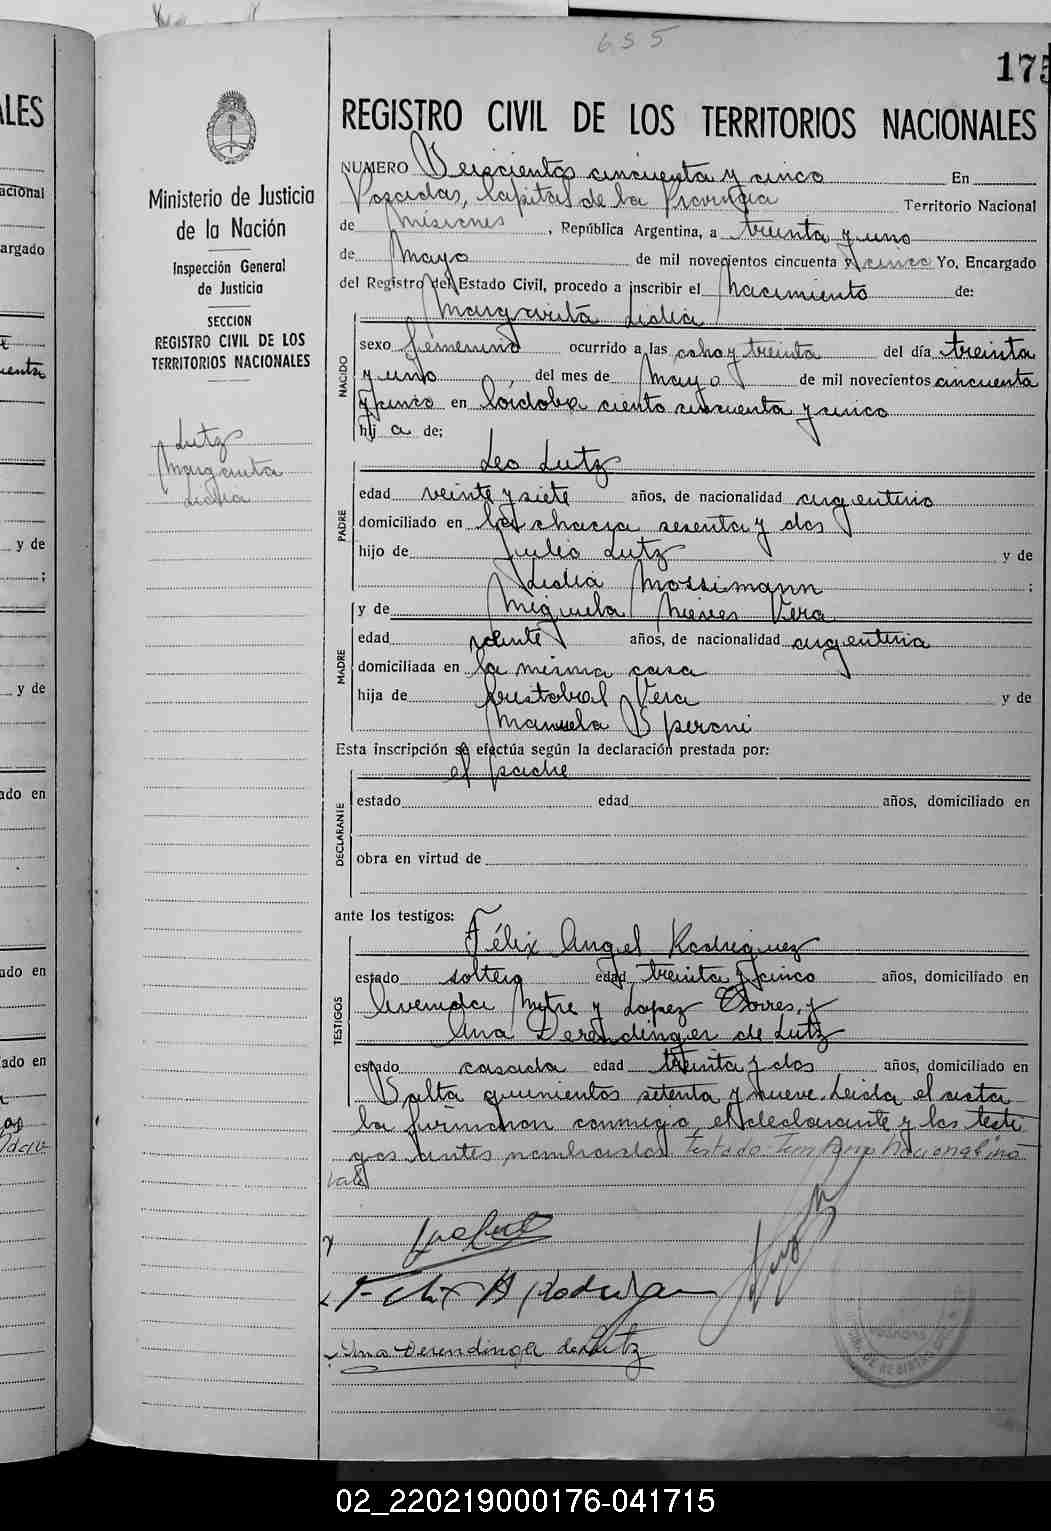 655
175
REGISTRO CIVIL DE LOS TERRITORIOS NACIONALES
NUMERO Seiscientos cincuenta y cinco En
Posadas, Capital de la Provincia Territorio Nacional
de Misiones, República Argentina, a treinta y uno
de Mayo de mil novecientos cincuenta y cinco Yo, Encargado
del Registro del Estado Civil, procedo a inscribir el Nacimiento de:
Margarita Lidia
NACIDO
sexo femenino ocurrido a las ocho y treinta del día treinta
y uno del mes de Mayo de mil novecientos cincuenta
y cinco en Córdoba ciento cincuenta y cinco
hija de;
Leo Lutz
PADRE
edad veinte y siete años, de nacionalidad argentino
domiciliado en la chacra sesenta y dos
hijo de Julio Lutz y de
Lidia Mossimann ;
y de Miguela Nieves Vera
MADRE
edad veinte años, de nacionalidad argentina
domiciliada en la misma casa
hija de Cristobal Vera y de
Manuela Speroni
Esta inscripción se efectúa según la declaración prestada por:
el padre
DECLARANTE
estado edad años, domiciliado en
obra en virtud de
ante los testigos:
Félix Angel Rodriguez
TESTIGOS
estado soltero edad treinta y cinco años, domiciliado en
Avenida Mitre y Lopez Torres, y
Ana Derendinger de Lutz
estado casada edad treinta y dos años, domiciliado en
Salta quinientos setenta y nueve. Leida el acta
la firmaron conmigo, el declarante y los testi
gos antes nombrados. Testado Territorio Nacional no
vale
Felix A Rodriguez
Ana Derendinger de Lutz
Ministerio de Justicia
de la Nación
Inspección General
de Justicia
SECCION
REGISTRO CIVIL DE LOS
TERRITORIOS NACIONALES
Lutz
Margarita
Lidia
ALES
acional
argado
y de
;
y de
ado en
ado en
ado en
02_220219000176-041715